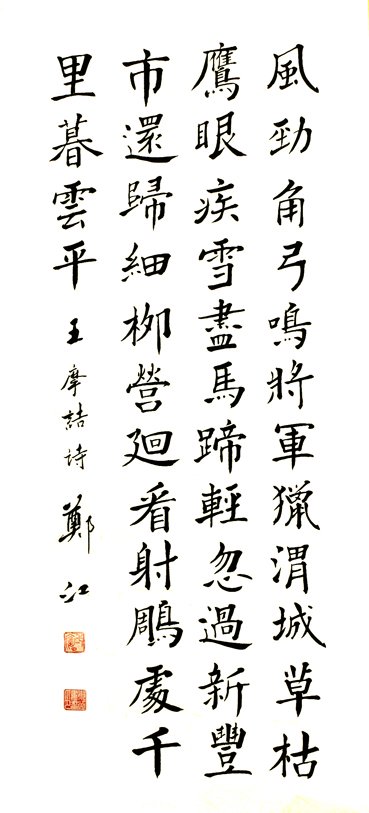 風勁角弓鳴將軍獵渭城草枯
鷹眼疾雪盡馬蹄輕忽過新豐
市還歸細柳營廻看射鵰處千
里暮雲平 王摩詰詩 鄭江